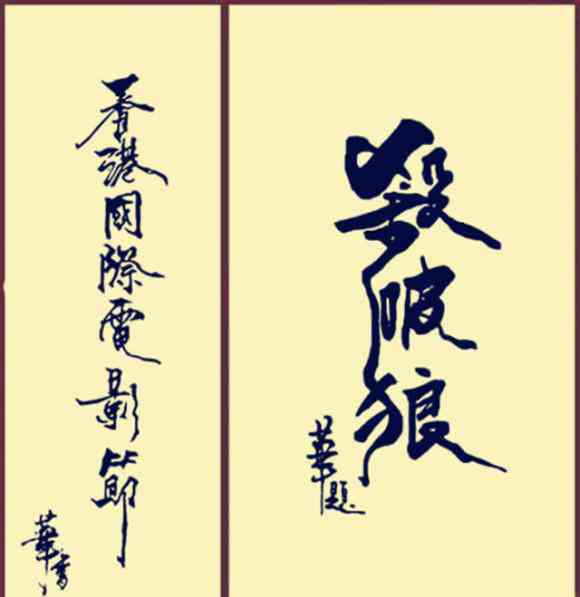 殺破狼
華題
香港國際電影節
華書